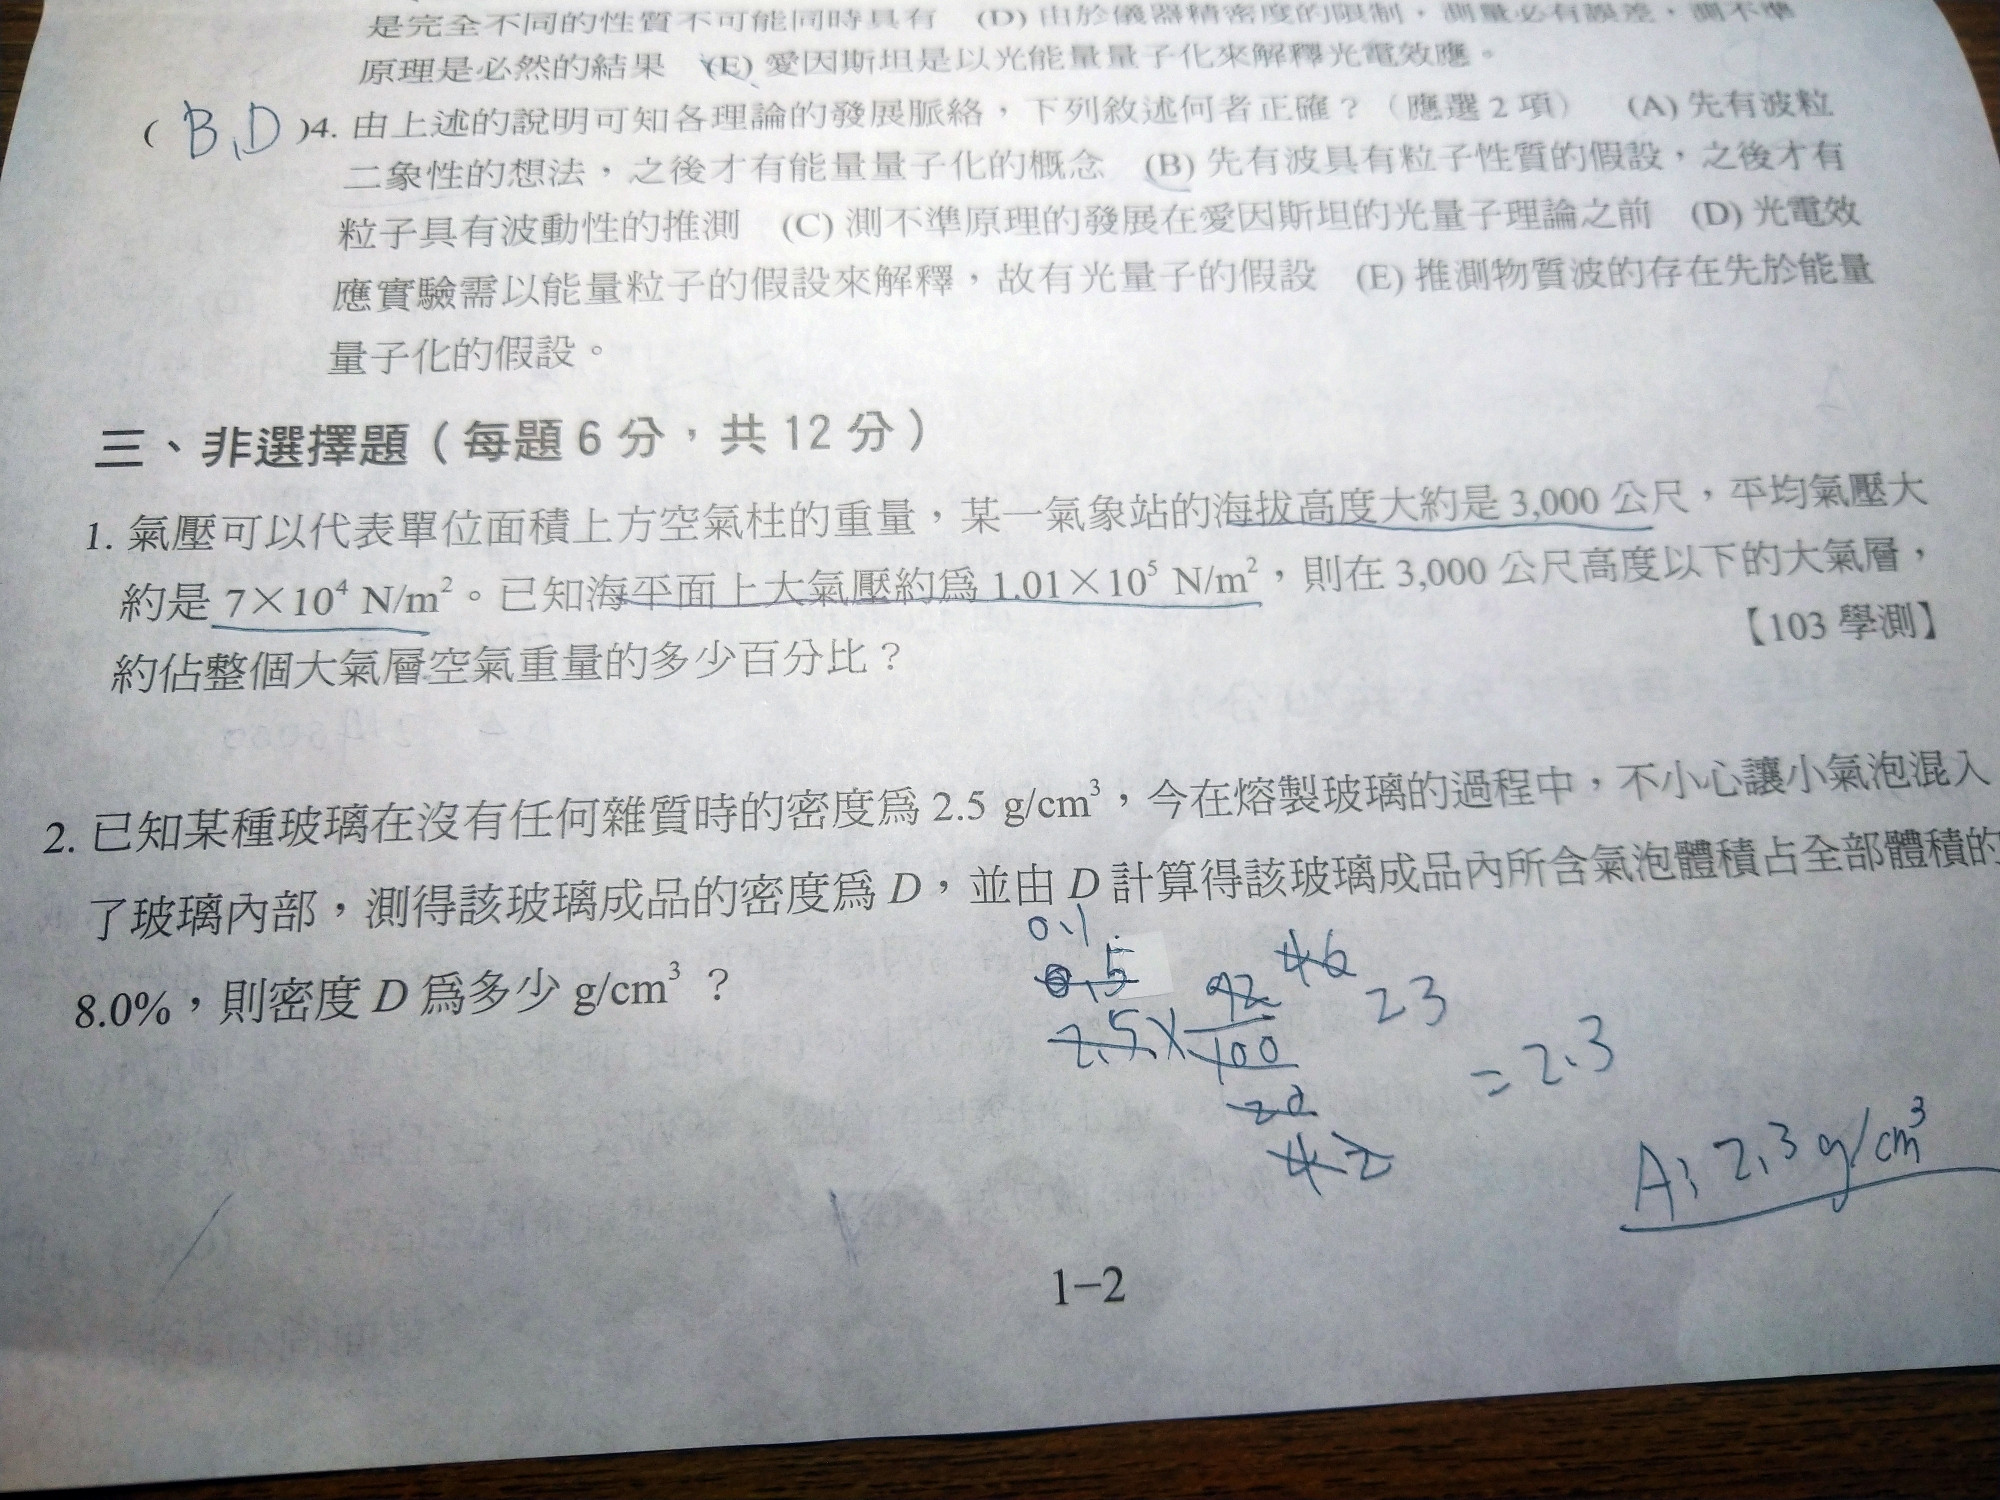 是完全不同的性質不可能同時具有 (D) 由於儀器精密度的限制，測量必有誤差，測不準
原理是必然的結果 (E) 愛因斯坦是以光能量量子化來解釋光電效應。
( B、D )4. 由上述的說明可知各理論的發展脈絡，下列敘述何者正確？（應選 2 項） (A) 先有波粒
二象性的想法，之後才有能量量子化的概念 (B) 先有波具有粒子性質的假設，之後才有
粒子具有波動性的推測 (C) 測不準原理的發展在愛因斯坦的光量子理論之前 (D) 光電效
應實驗需以能量粒子的假設來解釋，故有光量子的假設 (E) 推測物質波的存在先於能量
量子化的假設。
三、非選擇題（每題 6 分，共 12 分）
1. 氣壓可以代表單位面積上方空氣柱的重量，某一氣象站的海拔高度大約是 3,000 公尺，平均氣壓大
約是 7×10⁴ N/m²。已知海平面上大氣壓約為 1.01×10⁵ N/m²，則在 3,000 公尺高度以下的大氣層，
約佔整個大氣層空氣重量的多少百分比？
【103 學測】
2. 已知某種玻璃在沒有任何雜質時的密度為 2.5 g/cm³，今在熔製玻璃的過程中，不小心讓小氣泡混入
了玻璃內部，測得該玻璃成品的密度為 D，並由 D 計算得該玻璃成品內所含氣泡體積占全部體積的
8.0%，則密度 D 為多少 g/cm³ ？
0.1
0.5
46
2.5 × 92/100
23
= 2.3
A: 2.3 g/cm³
1-2